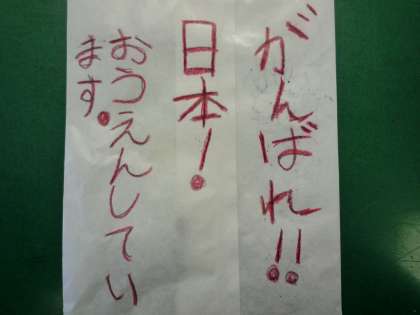 がんばれ!!
日本!
おうえんしてい
ます。